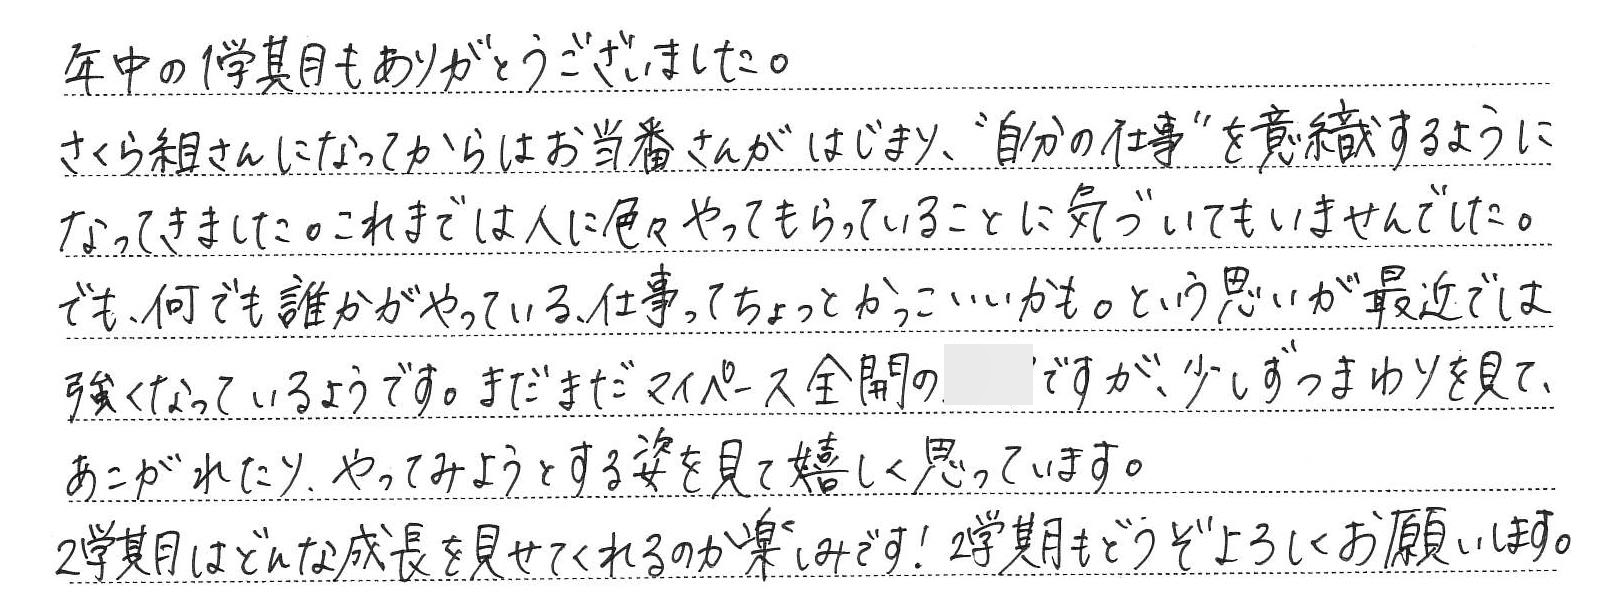 年中の1学期もありがとうございました。
さくら組さんになってからはお当番さんがはじまり、“自分の仕事”を意識するように
なってきました。これまでは人に色々やってもらっていることに気づいてもいませんでした。
でも、何でも誰かがやっている、仕事ってちょっとかっこいいかも。という思いが最近では
強くなっているようです。まだまだマイペース全開の ですが、少しずつまわりを見て、
あこがれたり、やってみようとする姿を見て嬉しく思っています。
2学期はどんな成長を見せてくれるのか楽しみです！2学期もどうぞよろしくお願いします。